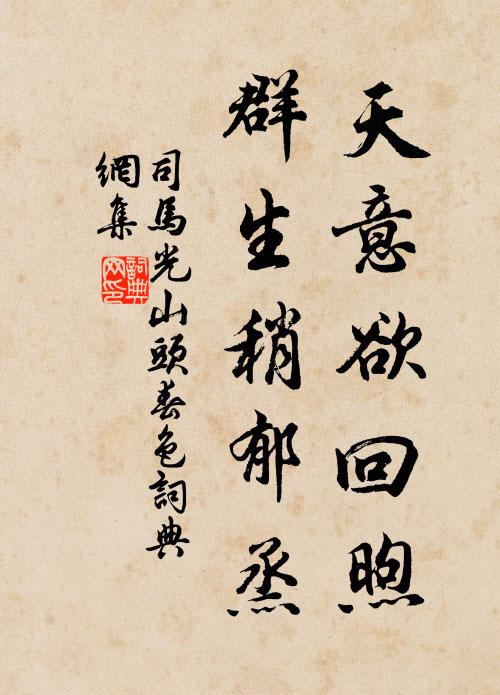 天意欲回煦
群生稍郁烝
司馬光山頭春色詞典
網集
詞典
网印